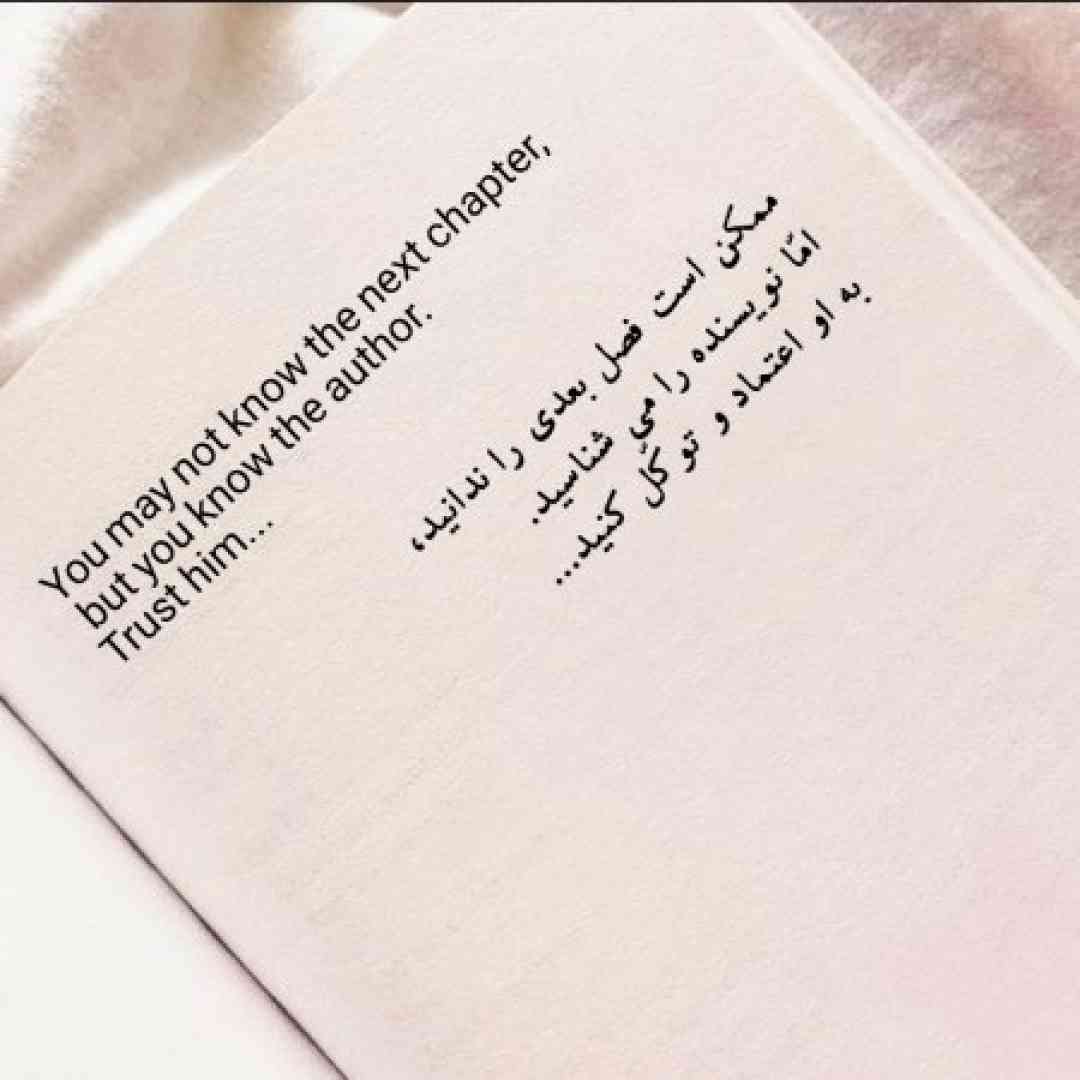 You may not know the next chapter,
but you know the author.
Trust him...
ممکن است فصل بعدی را ندانید،
امّا نویسنده را می شناسید.
به او اعتماد و توکّل کنید...